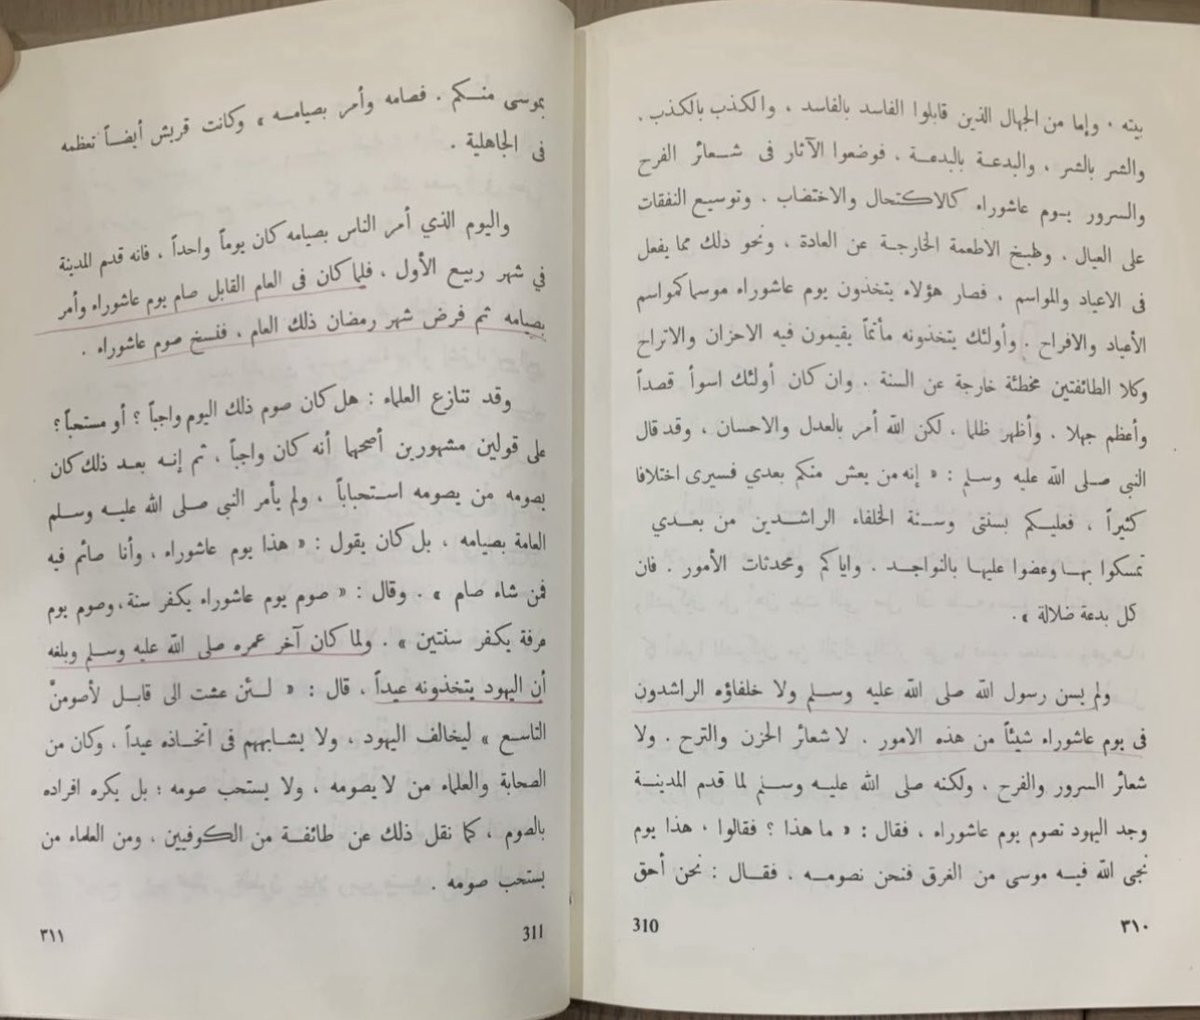 بيته . وإما من الجهال الذين قابلوا الفاسد بالفاسد ، والكذب بالكذب ،
والشر بالشر ، والبدعة بالبدعة ، فوضعوا الآثار فى شعائر الفرح
والسرور يوم عاشوراء كالاكتحال والاختضاب ، وتوسيع النفقات
على العيال ، وطبخ الاطعمة الخارجة عن العادة ، ونحو ذلك مما يفعل
فى الاعياد والمواسم ، فصار هؤلاء يتخذون يوم عاشوراء موسما كمواسم
الأعياد والافراح . وأولئك يتخذونه مأتمًا يقيمون فيه الاحزان والاتراح
وكلا الطائفتين مخطئة خارجة عن السنة . وان كان أولئك اسوأ قصداً
وأعظم جهلا ، وأظهر ظلما ، لكن الله أمر بالعدل والاحسان ، وقد قال
النبي صلى الله عليه وسلم : « إنه من يعش منكم بعدي فسيرى اختلافا
كثيراً ، فعليكم بسنتى وسنة الخلفاء الراشدين من بعدي
تمسكوا بها وعضوا عليها بالنواجد . واياكم ومحدثات الأمور . فان
كل بدعة ضلالة » .
ولم يسن رسول الله صلى الله عليه وسلم ولا خلفاؤه الراشدون
فى يوم عاشوراء شيئاً من هذه الامور . لا شعائر الحزن والترح . ولا
شعائر السرور والفرح ، ولكنه صلى الله عليه وسلم لما قدم المدينة
وجد اليهود تصوم يوم عاشوراء ، فقال : « ما هذا ؟ فقالوا . هذا يوم
نجى الله فيه موسى من الغرق فنحن نصومه ، فقال : نحن أحق
310 ٣١٠
بموسى منكم . فصامه وأمر بصيامه » وكانت قريش أيضاً تعظمه
فى الجاهلية .
واليوم الذي أمر الناس بصيامه كان يوماً واحداً ، فانه قدم المدينة
في شهر ربيع الأول ، فلما كان فى العام القابل صام يوم عاشوراء وأمر
بصيامه ثم فرض شهر رمضان ذلك العام ، فنسخ صوم عاشوراء .
وقد تنازع العلماء : هل كان صوم ذلك اليوم واجباً ؟ أو مستحباً ؟
على قولين مشهورين أصحهما أنه كان واجباً ، ثم إنه بعد ذلك كان
يصومه من يصومه استحباباً ، ولم يأمر النبي صلى الله عليه وسلم
العامة بصيامه ، بل كان يقول : « هذا يوم عاشوراء ، وأنا صائم فيه
فمن شاء صام » . وقال : « صوم يوم عاشوراء يكفر سنة ، وصوم يوم
عرفة يكفر سنتين » . ولما كان آخر عمره صلى الله عليه وسلم وبلغه
أن اليهود يتخذونه عيداً ، قال : « لئن عشت الى قابل لأصومنَّ
التاسع » ليخالف اليهود ، ولا يشابههم فى اتخاذه عيداً ، وكان من
الصحابة والعلماء من لا يصومه ، ولا يستحب صومه ؛ بل يكره افراده
بالصوم ، كما نقل ذلك عن طائفة من الكوفيين ، ومن العلماء من
يستحب صومه .
311 ٣١١